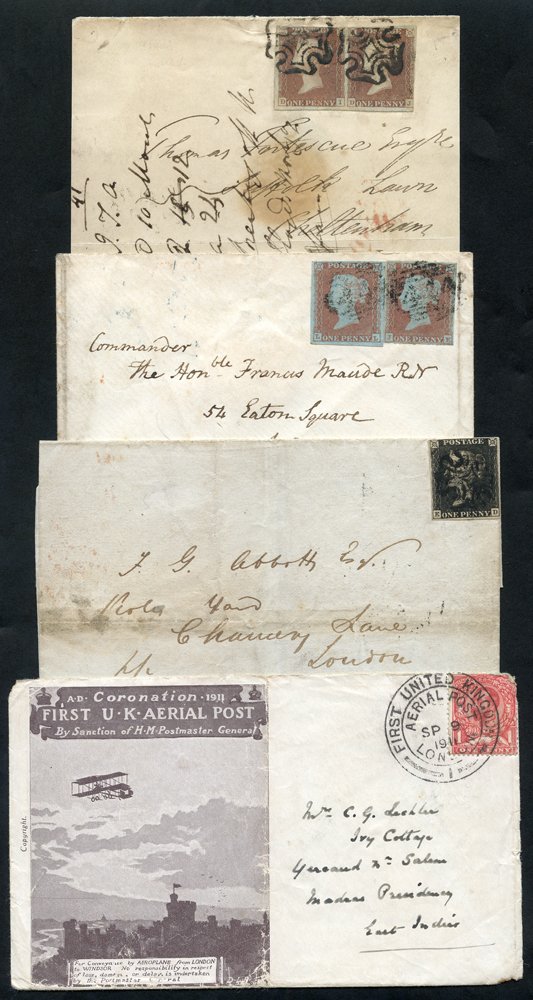 ONE PENNY
ONE PENNY
Thomas Fortescue Esqre
Suffolk Lawn
Cheltenham
41
POSTAGE
POSTAGE
ONE PENNY
ONE PENNY
Commander
The Honble Francis Maude RN
54 Eaton Square
POSTAGE
K ONE PENNY D
F. G. Abbott Esq.
Rolls Yard
Chancery Lane
London
A·D· Coronation · 1911
FIRST U·K·AERIAL POST
By Sanction of H·M·Postmaster General
Copyright.
For Conveyance by AEROPLANE from LONDON
to WINDSOR. No responsibility in respect
of loss, damage, or delay, is undertaken
by the Postmaster General
FIRST UNITED KINGDOM
AERIAL POST
SP 9
1911
LONDON
1
Mr. C. G. Lechler
Ivy Cottage
Yercaud Nr. Salem
Madras Presidency
East Indies